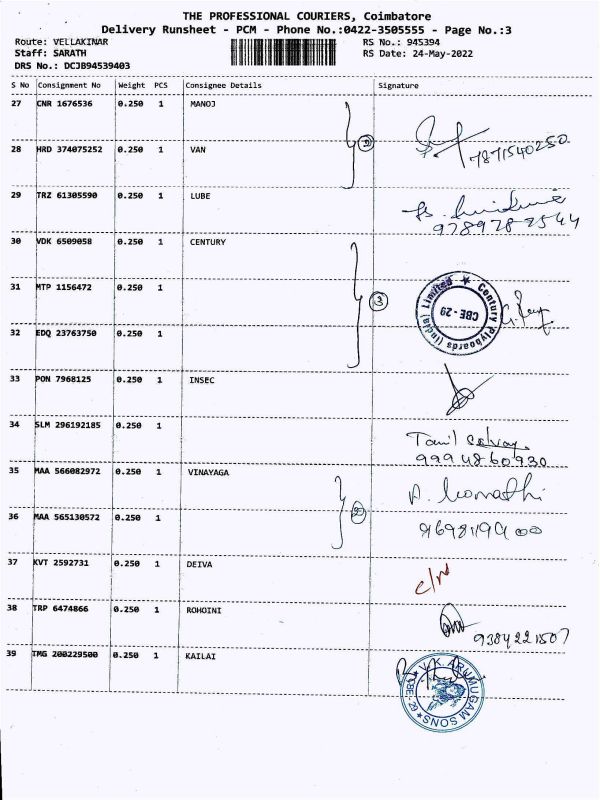 THE PROFESSIONAL COURIERS, Coimbatore
Delivery Runsheet - PCM - Phone No.:0422-3505555 - Page No.:3
Route: VELLAKINAR RS No.: 945394
Staff: SARATH RS Date: 24-May-2022
DRS No.: DCJB94539403
S No Consignment No Weight PCS Consignee Details Signature
27 CNR 1676536 0.250 1 MANOJ
2
28 HRD 374075252 0.250 1 VAN 7871540250
29 TRZ 61305590 0.250 1 LUBE
9789782544
30 VDK 6509058 0.250 1 CENTURY
31 MTP 1156472 0.250 1
3 Century Plyboards (India) Limited ★ CBE - 29
32 EDQ 23763750 0.250 1
33 PON 7968125 0.250 1 INSEC
34 SLM 296192185 0.250 1
Tamil Selvan
9994860930
35 MAA 566082972 0.250 1 VINAYAGA
2
36 MAA 565130572 0.250 1
37 KVT 2592731 0.250 1 DEIVA
c/r
38 TRP 6474866 0.250 1 ROHOINI
9384221507
39 TMG 200229500 0.250 1 KAILAI
V.K. ARUMUGAM SONS ★ CBE-29 ★